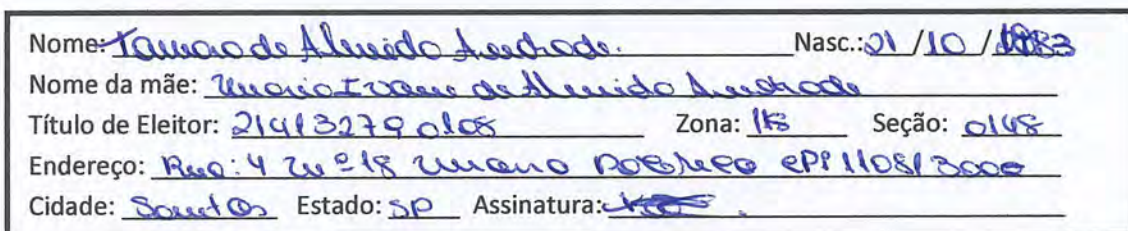 Nome: Tamara de Almeida Andrade. Nasc.: 21 /10 /1983
Nome da mãe: Maria Ivane de Almeida Andrade
Título de Eleitor: 214132790108 Zona: 118 Seção: 0148
Endereço: Rua: 4 Nº 18
Cidade: Santos Estado: SP Assinatura: